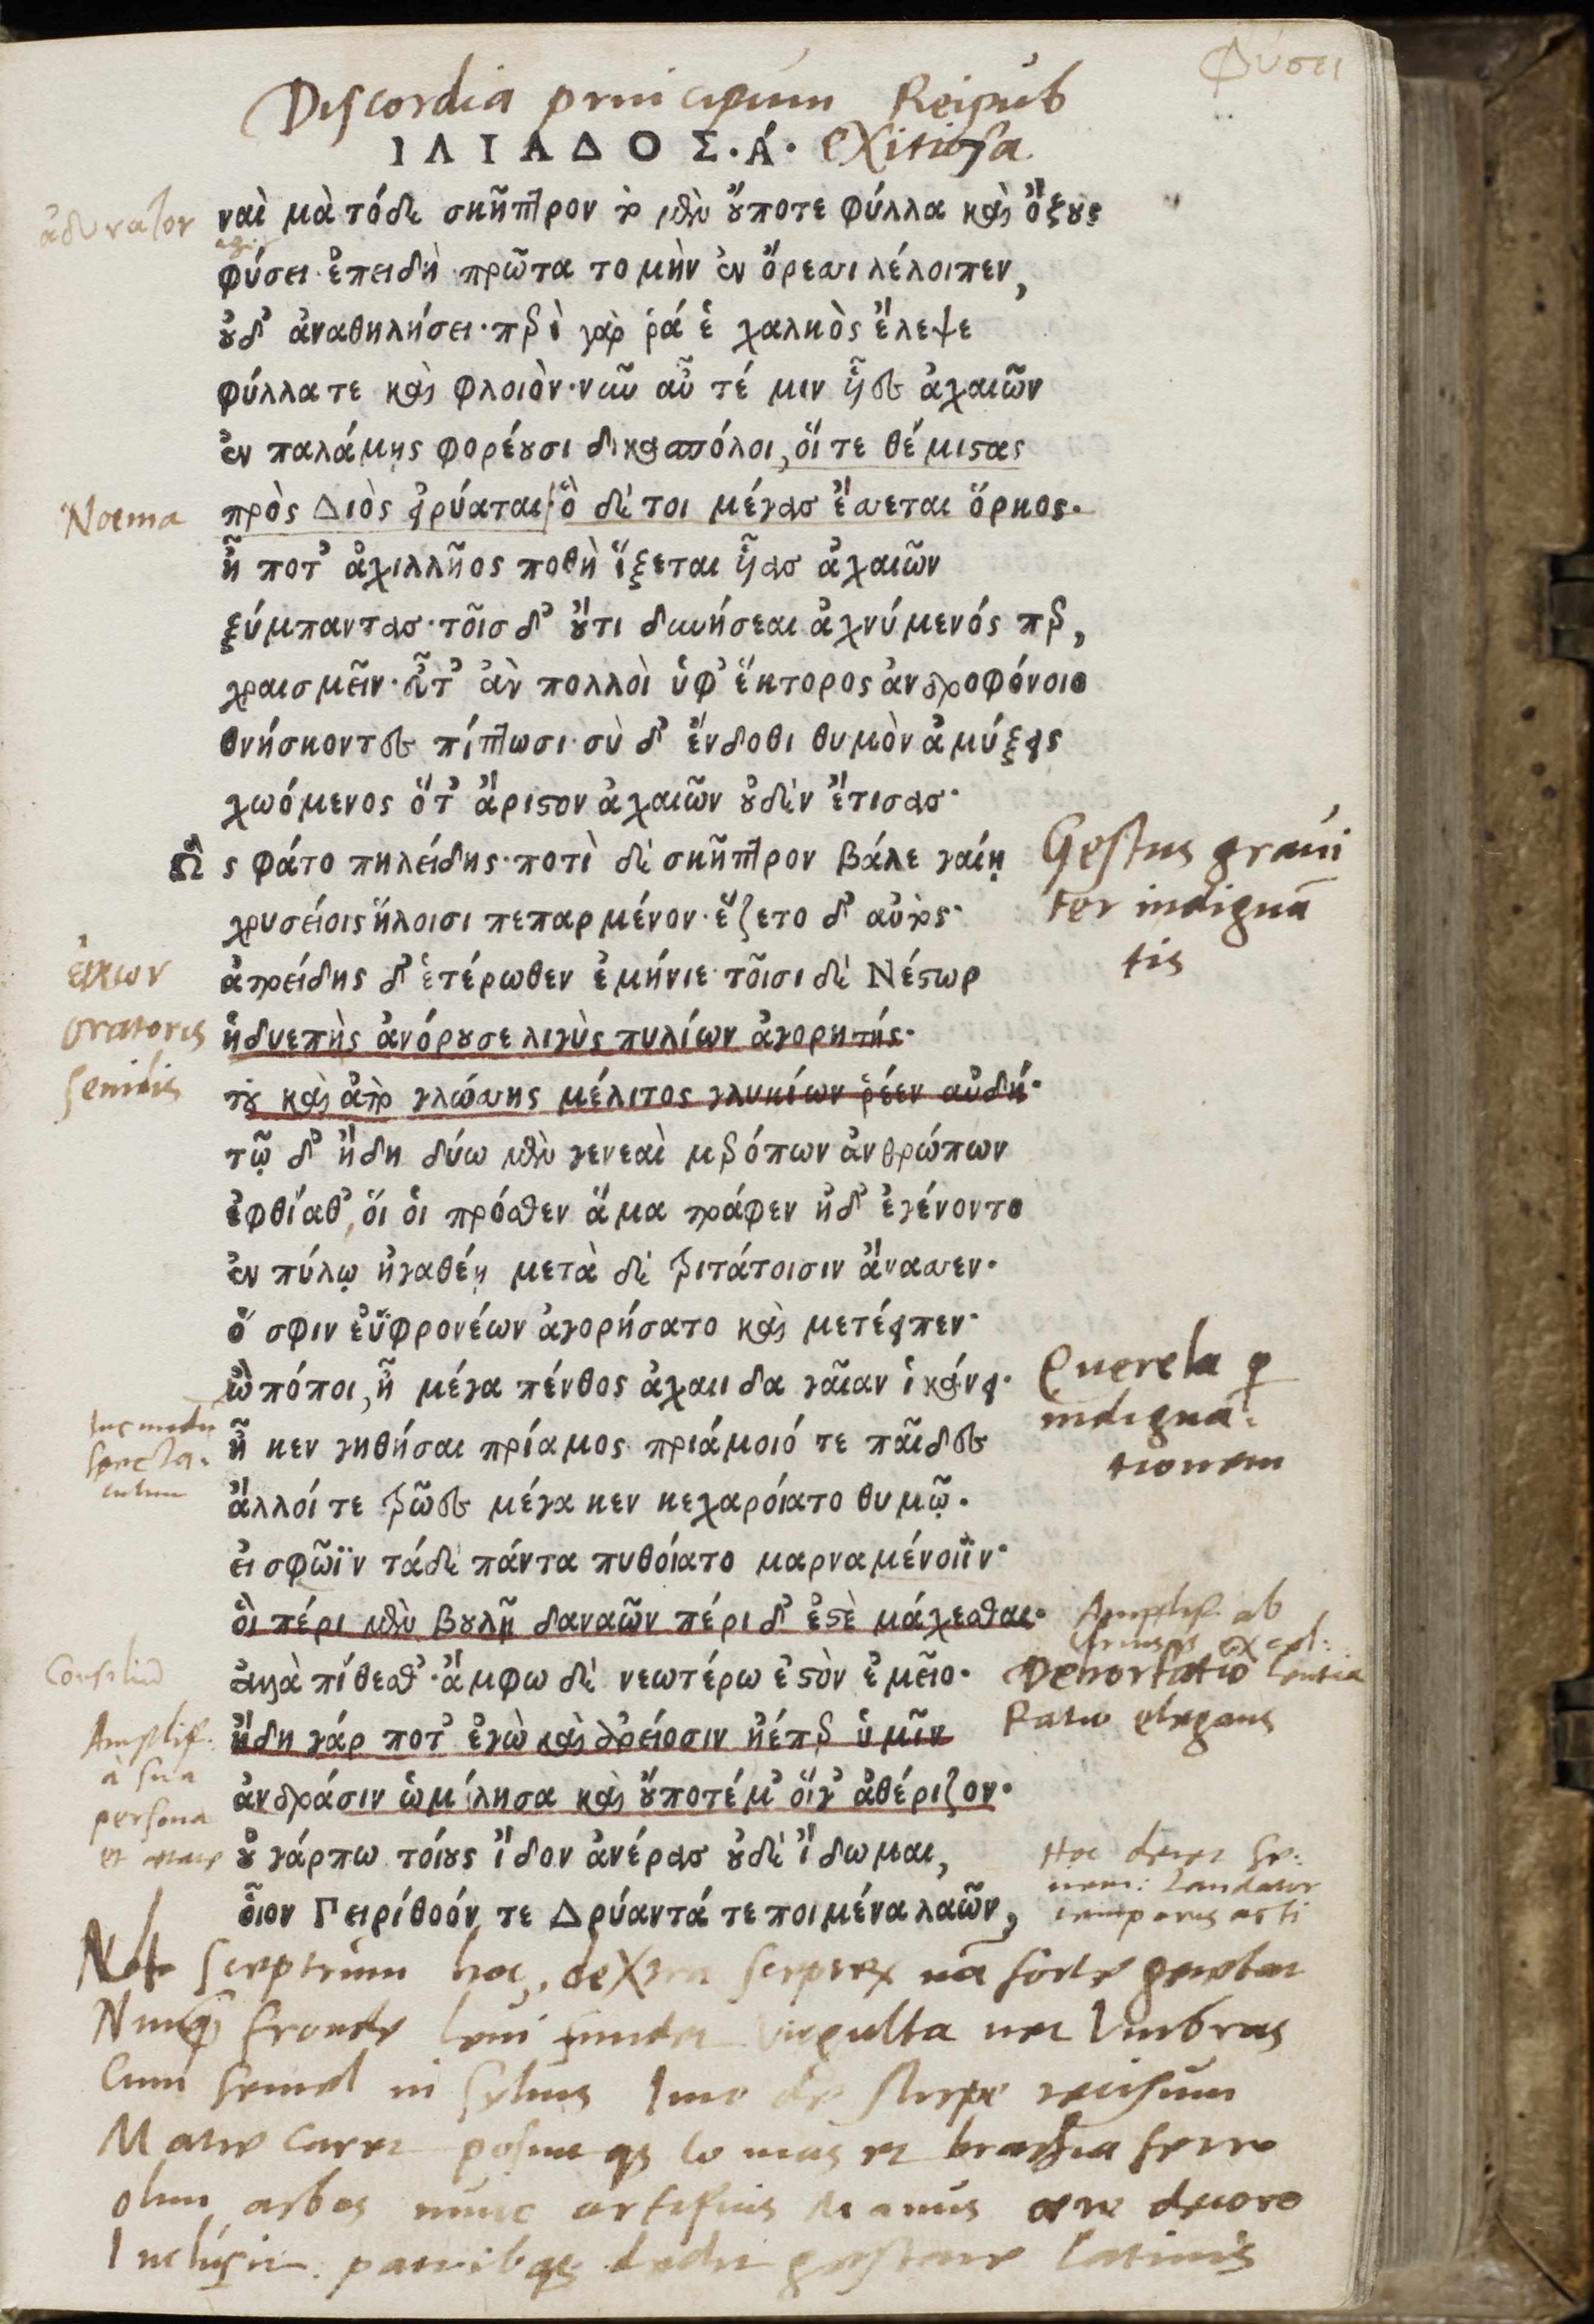 φύσει
Discordia principum Reipub
ΙΛΙΑΔΟΣ. Α. exitiosa
ἀδυνατον
ναὶ μὰ τόδε σκῆπτρον τὸ μὲν οὔποτε φύλλα καὶ ὄζους
φύσει· ἐπειδὴ πρῶτα τομὴν ἐν ὄρεσσι λέλοιπεν,
οὐδ' ἀναθηλήσει· περὶ γάρ ῥά ἑ χαλκὸς ἔλεψε
φύλλα τε καὶ φλοιὸν· νῦν αὖ τέ μιν ἧες ἀχαιῶν
ἐν παλάμης φορέουσι δικασπόλοι, οἵ τε θέμιστας
Noema
πρὸς Διὸς εἰρύαται· ὃ δέ τοι μέγας ἔσσεται ὅρκος.
ἦ ποτ' ἀχιλλῆος ποθὴ ἵξεται ἧας ἀχαιῶν
ξύμπαντας· τοῖσ δ' οὔτι δυνήσεαι ἀχνύμενός περ,
χραισμεῖν· εὖτ' ἂν πολλοὶ ὑφ' ἕκτορος ἀνδροφόνοιο
θνήσκοντες πίπτωσι· σὺ δ' ἔνδοθι θυμὸν ἀμύξεις
χωόμενος ὅτ' ἄριστον ἀχαιῶν οὐδὲν ἔτισας·
Ὣς φάτο πηλείδης· ποτὶ δὲ σκῆπτρον βάλε γαίῃ
Gestus graui
ter indignā
tis
χρυσείοις ἥλοισι πεπαρμένον· ἕζετο δ' αὐτός·
ἀτρείδης δ' ἑτέρωθεν ἐμήνιε· τοῖσι δὲ Νέστωρ
εἰκων
oratoris
senilis
ἡδυεπὴς ἀνόρουσε λιγὺς πυλίων ἀγορητής·
τοῦ καὶ ἀπὸ γλώσσης μέλιτος γλυκίων ῥέεν αὐδή·
τῷ δ' ἤδη δύω μὲν γενεαὶ μερόπων ἀνθρώπων
ἐφθίαθ', οἵ οἱ πρόσθεν ἅμα τράφεν ἠδ' ἐγένοντο
ἐν πύλῳ ἠγαθέῃ μετὰ δὲ τριτάτοισιν ἄνασσεν·
ὅ σφιν ἐϋφρονέων ἀγορήσατο καὶ μετέειπεν·
ὢ πόποι, ἦ μέγα πένθος ἀχαιίδα γαῖαν ἱκάνει·
Querela
indigna-
tionem
ἦ κεν γηθήσαι πρίαμος πριάμοιό τε παῖδες
ἄλλοί τε τρῶες μέγα κεν κεχαροίατο θυμῷ.
εἰ σφῶϊν τάδε πάντα πυθοίατο μαρναμένοιϊν·
οἳ πέρι μὲν βουλῇ δαναῶν πέρι δ' ἐστὲ μάχεσθαι·
Amplif. ab
Consiliū
ἀλλὰ πίθεσθ'· ἄμφω δὲ νεωτέρω ἐστὸν ἐμεῖο·
Dehortatio
Ratio elegans
Amplif.
à sua
persona
ἤδη γάρ ποτ' ἐγὼ καὶ ἀρείοσιν ἠέπερ ὑμῖν
ἀνδράσιν ὡμίλησα καὶ οὔποτέ μ' οἵγ' ἀθέριζον·
οὐ γάρ πω τοίους ἴδον ἀνέρας οὐδὲ ἴδωμαι,
οἷον Πειρίθοόν τε Δρύαντά τε ποιμένα λαῶν,
Hoc decet se-
nem: laudator
temporis acti
sceptrum hoc, dextra sceptrum nā forte gerebat
Nunq̄ fronde leui fundet virgulta nec Vmbras
Cum semel in syluis Imo de stirpe recisum
Matre caret posuitqs comas et brachia ferro
olim arbos nunc artificis Manus aere decoro
Inclusit patribqs dedit gestare latinis